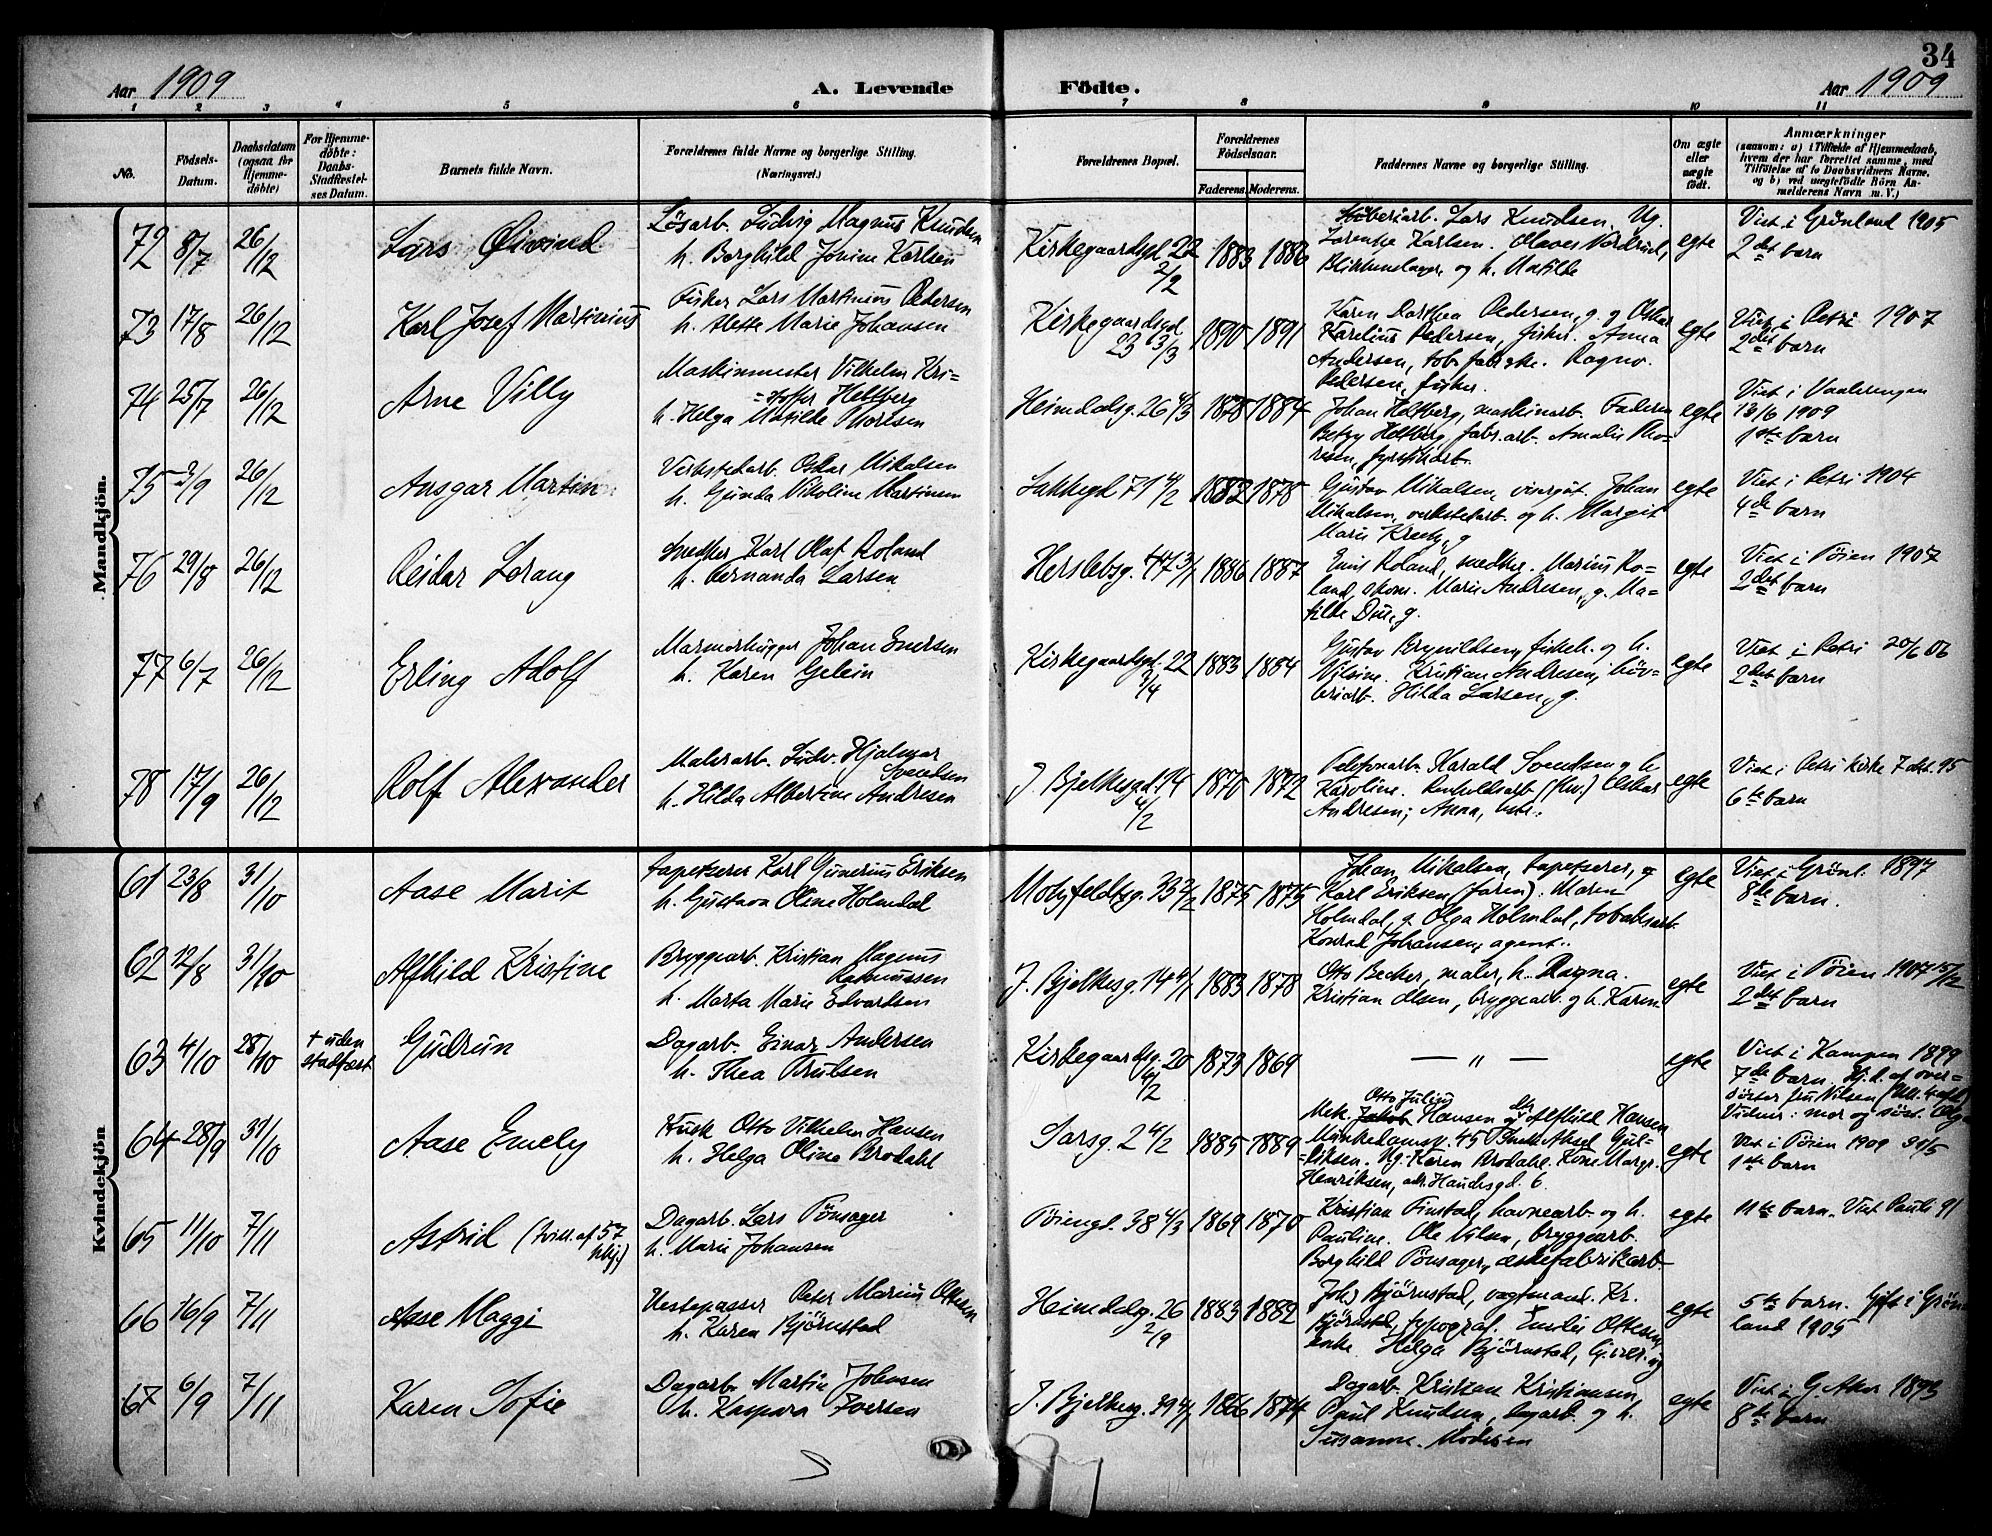 34
Aar 1909
A. Levende Födte.
Aar 1909
1 2 3 4 5 6 7 8 9 10 11
No.
Födsels-Datum.
Daabsdatum (ogsaa for Hjemme-döbte)
For Hjemme-döbte: Daabs-Stadfæstel-ses Datum.
Barnets fulde Navn.
Forældrenes fulde Navne og borgerlige Stilling. (Næringsvei.)
Forældrenes Bopæl.
Forældrenes Födselsaar.
Faderens. Moderens.
Faddernes Navne og borgerlige Stilling.
Om ægte eller uægte födt.
Anmærkninger
(saasom: a) i Tilfælde af Hjemmedaab, hvem der har forrettet samme, med Tilföielse af to Daabsvidners Navne. og b) ved uægtefödte Börn An-melderens Navn m. V.)
Mandkjön.
72 8/7 26/12 Lars Øivind
Løsarb. Ludvig Magnus Knudsen
h. Borghild Jovine Karlsen
Kirkegaardsgd 22 2/2 1883 1886
Lars Knudsen. Ug.
Karlsen. Olaves
og h. Matilde
egte
Viet i Grønland 1905
2det barn
73 17/8 26/12 Karl Josef Martinius
Fisker Lars Martinius Pedersen
h. Alette Marie Johansen
Kirkegaardsgd 23 3/3 1890 1891
Karen Dorthea Pedersen, g. og Oskar
Karelius Pedersen, fisker. Anna
Andersen, tob.fabrike. Ragnv.
Pedersen, fisker.
egte
Viet i Petri 1907
2det barn
74 25/7 26/12 Arne Villy
Maskinmester Vilhelm Kri-
=stoffer Heltberg
h. Helga Matilde Thoresen
Heimdalsg. 26 4/3 1878 1884
Johan Heltberg, maskinarb. Faderen
Betzy Heltberg, fabr.arb. Amalie Tho-
resen, fyrstikarb.
egte
Viet i Vaalerengen
13/6 1909
1ste barn
75 3/9 26/12 Ansgar Martin
Verkstedarb. Oskar Mikalsen
h. Gunda Nikoline Martinsen
Lakkegd 71 4/2 1882 1878
Gustav Mikalsen, visergut. Johan
Mikalsen, verkstedarb. og h. Margit
Marie g
egte
Viet i Petri 1904
4de barn
76 29/8 26/12 Reidar Lorang
Snedker Karl Olaf Roland
h. Fernanda Larsen
Herslebsg. 47 3/1 1886 1887
Emil Roland, snedker. Marius Ro=
land, skom. Marie Andresen, g. Ma=
tilde Due, g.
egte
Viet i Tøien 1907
2det barn
77 6/7 26/12 Erling Adolf
Marmorhugger Johan Enersen
h. Karen Gelein
Kirkegaardsgd. 22 3/4 1883 1884
Gustav Brynildsen, fiskeh. og h.
Nilsine. Kristian Andresen, høv-
leriarb. Hilda Larsen, g.
egte
Viet i Petri 20/6 06
2det barn
78 17/9 26/12 Rolf Alexander
Malerarb. Ludv. Hjalmar
Svendsen
h. Hilda Albertine Andresen
J. Bjelkesgd. 14 4/2 1870 1872
Telefonarb. Harald Svendsen og h.
Karoline. Renholdsarb. (kv.)
Andresen; Anna,
egte
Viet i Petri kirke 7 okt. 95
6te barn
Kvindekjön
61 23/8 31/10 Aase Marit
Tapetserer Karl Gunerius Eriksen
h. Gustava Oline Holmdal
Motzfeldtsg. 33 2/2 1875 1875
Johan Mikalsen, tapetserer, og
Karl Eriksen (faren). Maren
Holmdal, g. Olga Holmdal, tobaksarb.
Konrad Johansen, agent.
egte
Viet i Grønl. 1897
8de barn.
62 12/8 31/10 Alfhild Kristine
Bryggearb. Kristian Magnus
Rasmussen
h. Marta Marie Edvardsen
J. Bjelkesg. 14 4/1 1883 1878
Otto Becker, maler, h. Ragna.
Kristian Olsen, bryggearb. og h. Karen
egte
Viet i Tøien 1907 15/12
2det barn
63 4/10 28/10 + uden stadfæst Gudrun
Dagarb. Einar Andersen
h. Thea Trulsen
Kirkegaardsg. 20 4/2 1873 1869
— " —
egte
Viet i Kampen 1899
7de barn. Hj.d. af over-
søster fru Nilsen
Vidner: mor og søst. Olga
64 28/9 31/10 Aase Emely
Kusk Otto Vilhelm Hansen
h. Helga Olina Brodahl
Sarsg. 2 4/2 1885 1889
Otto Julius
Mek. Jakob Hansen og Alfhild Hansen
Munkedamsv. 45 Aksel Gul-
=liksen. Ug. Karen Brodahl. Kone Margr.
Henriksen,
egte
Viet i Tøien 1909 31/5
1ste barn
65 11/10 7/11 Astrid (tvill. af 57
Dagarb. Lars Tønsager
h. Marie Johansen
Tøiengt. 38 4/3 1869 1870
Kristian Finstad, havnearb. og h.
Pauline. Ole Nilsen, bryggearb.
Borghild Tønsager, æskefabrikarb.
egte
11te barn. Viet Pauli 91
66 16/9 7/11 Aase Maggi
Hestepasser Peter Marius Ottesen
h. Karen Bjørnstad
Heimdalsg. 26 2/9 1883 1882
Johs Bjørnstad, vagtmand. Kr.
Bjørnstad, typograf. Emilie Ottesen,
enke Helga Bjørnstad,
egte
5te barn. Gift i Grøn
land 1905
67 6/9 7/11 Karen Sofie
Dagarb. Martin Johnsen
h. Kaspara Iversen
J. Bjelkesg. 39 4/1 1866 1874
Dagarb. Kristian Kristiansen,
Paul Knudsen, dagarb. og h.
Susanne. Moderen
egte
Viet i G. Aker 1893
8de barn